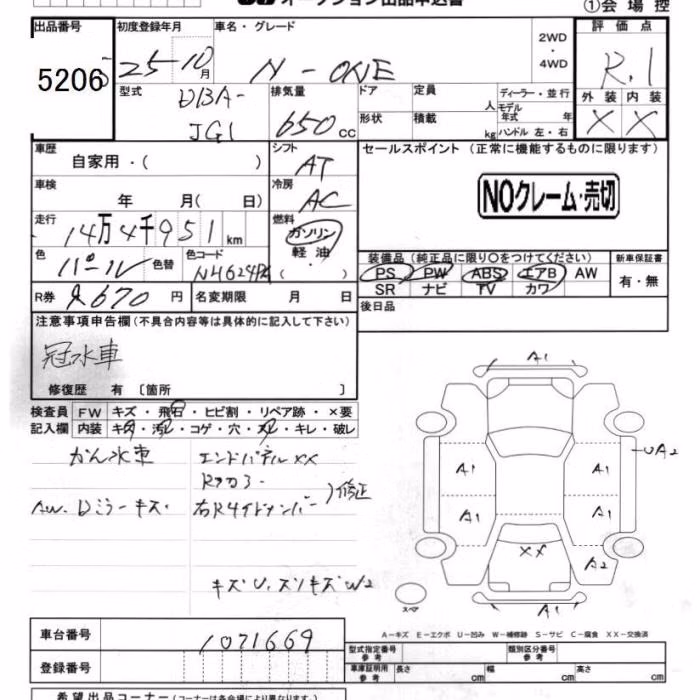 オークション出品申込書
①会場控
出品番号
5206
初度登録年月
25-10月
車名・グレード
N-ONE
2WD
・
4WD
評価点
R.1
外装 内装
X X
型式
DBA-
JG1
排気量
650cc
ドア
形状
定員
人
積載
kg
ディーラー・並行
モデル
年式 年
ハンドル 左・右
車歴
自家用・( )
シフト
AT
セールスポイント (正常に機能するものに限ります)
NOクレーム・売切
車検
年 月( 日)
冷房
AC
走行
14万4千951km
燃料
ガソリン
軽油
( )
色
パール
色替
色コード
装備品(純正品に限り○をつけてください)
PS PW ABS エアB AW
SR ナビ TV カワ
新車保証書
有・無
R券
670円
名変期限 月 日
後日品
注意事項申告欄(不具合内容等は具体的に記入して下さい)
冠水車
修復歴 有 [箇所 ]
検査員
記入欄
FW キズ・飛石・ヒビ割・リペア跡・×要
内装 キズ・汚レ・コゲ・穴・スレ・キレ・破レ
かん水車
エンドパネルXX
AW.Dミラーキズ
右Rサイドメンバー
修正
キズU.スリキズW2
A1
UA2
A1
A1
A1
A1
XX
A2
A1
スペア
A-キズ E-エクボ U-凹み W-補修跡 S-サビ C-腐食 XX-交換済
車台番号
1071669
登録番号
型式指定番号
参考
類別区分番号
参考
車庫証明用
参考
長さ cm
幅 cm
高さ cm
希望出品コーナー(コーナーは各会場により異なります)